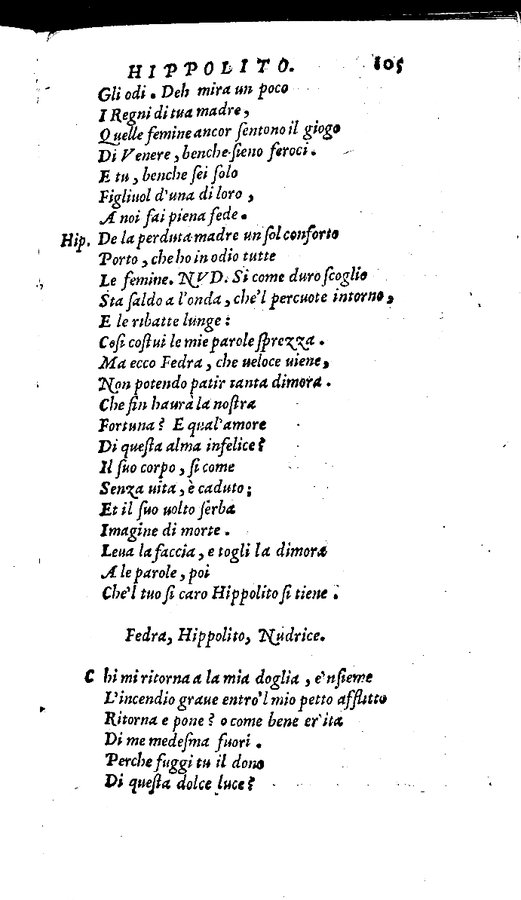 HIPPOLITO. 105
Gli odi. Deh mira un poco
I Regni di tua madre,
Quelle femine ancor ſentono il giogo
Di Venere, benche ſieno feroci.
E tu, benche ſei ſolo
Figliuol d'una di loro,
A noi fai piena fede.
Hip. De la perduta madre un ſol conforto
Porto, che ho in odio tutte
Le femine. NVD. Si come duro ſcoglio
Sta ſaldo a l'onda, che'l percuote intorno,
E le ribatte lunge:
Coſi coſtui le mie parole ſprezza.
Ma ecco Fedra, che ueloce uiene,
Non potendo patir tanta dimora.
Che fin haurà la noſtra
Fortuna? E qual'amore
Di queſta alma infelice?
Il ſuo corpo, ſi come
Senza uita, è caduto;
Et il ſuo uolto ſerba
Imagine di morte.
Leua la faccia, e togli la dimora
A le parole, poi
Che'l tuo ſi caro Hippolito ſi tiene.
Fedra, Hippolito, Nudrice.
C hi mi ritorna a la mia doglia, e'nſieme
L'incendio graue entro'l mio petto afflitto
Ritorna e pone? o come bene er'ita
Di me medeſma fuori.
Perche fuggi tu il dono
Di queſta dolce luce?